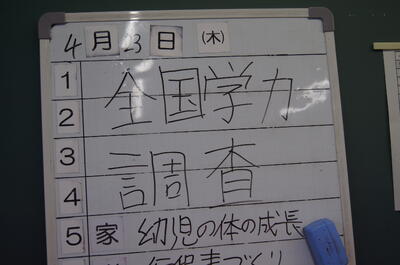 4月23日(木)
1
全国学力
2
3
調査
4
5 家 幼児の体の成長
づくり